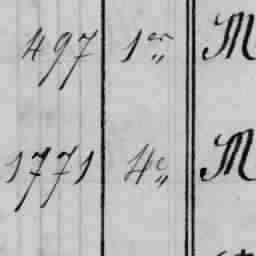 497 1er„ M
1771 4e„ M